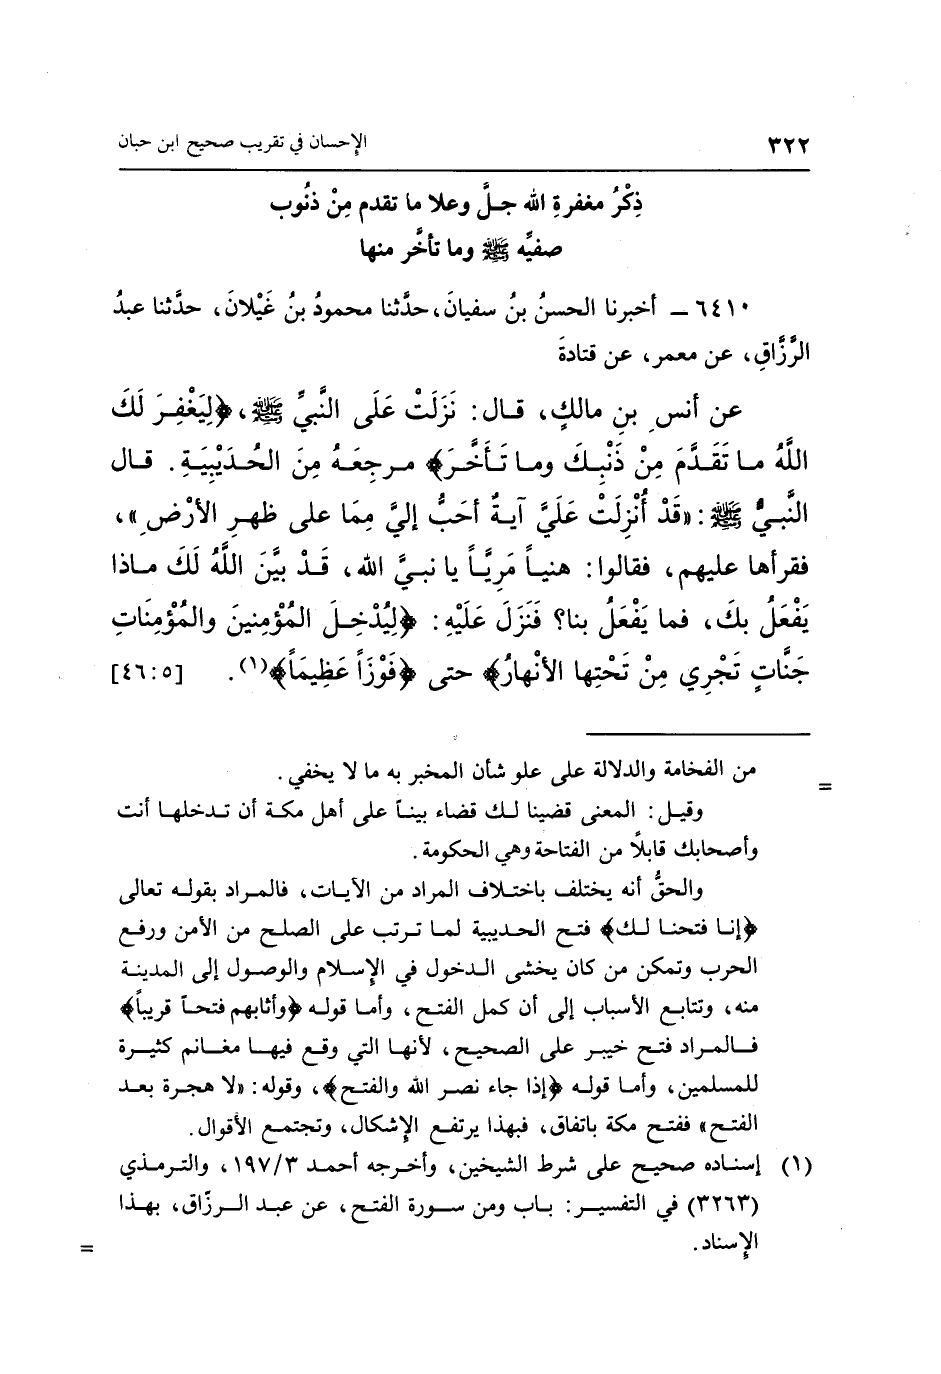 ٣٢٢ الإحسان في تقريب صحيح ابن حبان
ذِكْرُ مغفرةِ الله جلَّ وعلا ما تقدم مِنْ ذنُوب
صفيِّه ﷺ وما تأخَّر منها
٦٤١٠ ـ أخبرنا الحسنُ بنُ سفيانَ، حدَّثنا محمودُ بنُ غَيْلانَ، حدَّثنا عبدُ
الرَّزَّاقِ، عن معمر، عن قتادةَ
عن أنس بنِ مالكٍ، قال: نَزَلَتْ عَلَى النَّبيِّ ﷺ، ﴿لِيَغْفِرَ لَكَ
اللَّهُ ما تَقَدَّمَ مِنْ ذَنْبِكَ وما تَأَخَّرَ﴾ مرجعَهُ مِنَ الحُدَيْبِيَةِ. قال
النَّبيُّ ﷺ: «قَدْ أُنْزِلَتْ عَلَيَّ آيةٌ أحَبُّ إليَّ مِمَا على ظهرِ الأرْضِ»،
فقرأها عليهم، فقالوا: هنياً مَرِيَّاً يا نبيَّ الله، قَدْ بيَّنَ اللَّهُ لَكَ ماذا
يَفْعَلُ بكَ، فما يَفْعَلُ بنا؟ فَنَزَلَ عَلَيْهِ: ﴿لِيُدْخِلَ المُؤْمِنينَ والمُؤْمِنَاتِ
جَنَّاتٍ تَجْرِي مِنْ تَحْتِها الأنْهارُ﴾ حتى ﴿فَوْزَاً عَظِيمَاً﴾(١). [٤٦:٥]
= من الفخامة والدلالة على علو شأن المخبر به ما لا يخفي.
وقيل: المعنى قضينا لك قضاء بيناً على أهل مكة أن تدخلها أنت
وأصحابك قابلاً من الفتاحة وهي الحكومة.
والحقُّ أنه يختلف باختلاف المراد من الآيات، فالمراد بقوله تعالى
﴿إنا فتحنا لك﴾ فتح الحديبية لما ترتب على الصلح من الأمن ورفع
الحرب وتمكن من كان يخشى الدخول في الإسلام والوصول إلى المدينة
منه، وتتابع الأسباب إلى أن كمل الفتح، وأما قوله ﴿وأثابهم فتحاً قريباً﴾
فالمراد فتح خيبر على الصحيح، لأنها التي وقع فيها مغانم كثيرة
للمسلمين، وأما قوله ﴿إذا جاء نصر الله والفتح﴾، وقوله: «لا هجرة بعد
الفتح» ففتح مكة باتفاق، فبهذا يرتفع الإشكال، وتجتمع الأقوال.
(١) إسناده صحيح على شرط الشيخين، وأخرجه أحمد ١٩٧/٣، والترمذي
(٣٢٦٣) في التفسير: باب ومن سورة الفتح، عن عبد الرزّاق، بهذا
الإسناد. =